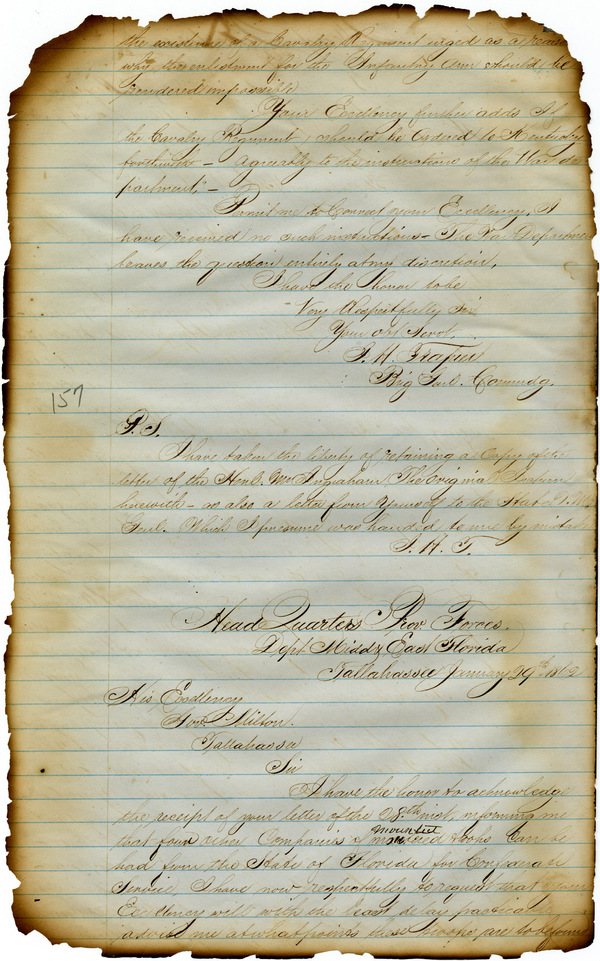 the existence of a Cavalry Regiment urged as a reason
why the enlistment for the Infantry Arm should be
rendered impossible
Your Excellency further adds If
the Cavalry Regiment should be ordered to
agreeably to the instructions of the War de
partment," —
Permit me to Correct your Excellency. I
have received no such instructions — The War Departme
leaves the question entirely at my discretion,
I have the honor to be
Very Respectfully Sir
Your Obt Servt.
J. H. Trapier
Brig Genl. Commdg.
157
P. S.
I have taken the liberty of retaining a Copy of the
letter of the Honl. Mr Ingraham The original I return
herewith — as also a letter from yourself to the
Genl. Which I presume was handed to me by mistake
J. H. T.
Head Quarters Prov. Forces.
Dept. Midd & East Florida
Tallahassee January 29th 1862
His Excellency
Gov. Milton.
Tallahassee
Sir
I have the honor to acknowledge
the receipt of your letter of the 28th inst, informing me
that four other Companies of mounted troops Can be
had from the State of Florida for Confederate
Service I have now respectfully to request that your
Excellency will with the least delay practicable
advise me at what points these troops are to be found